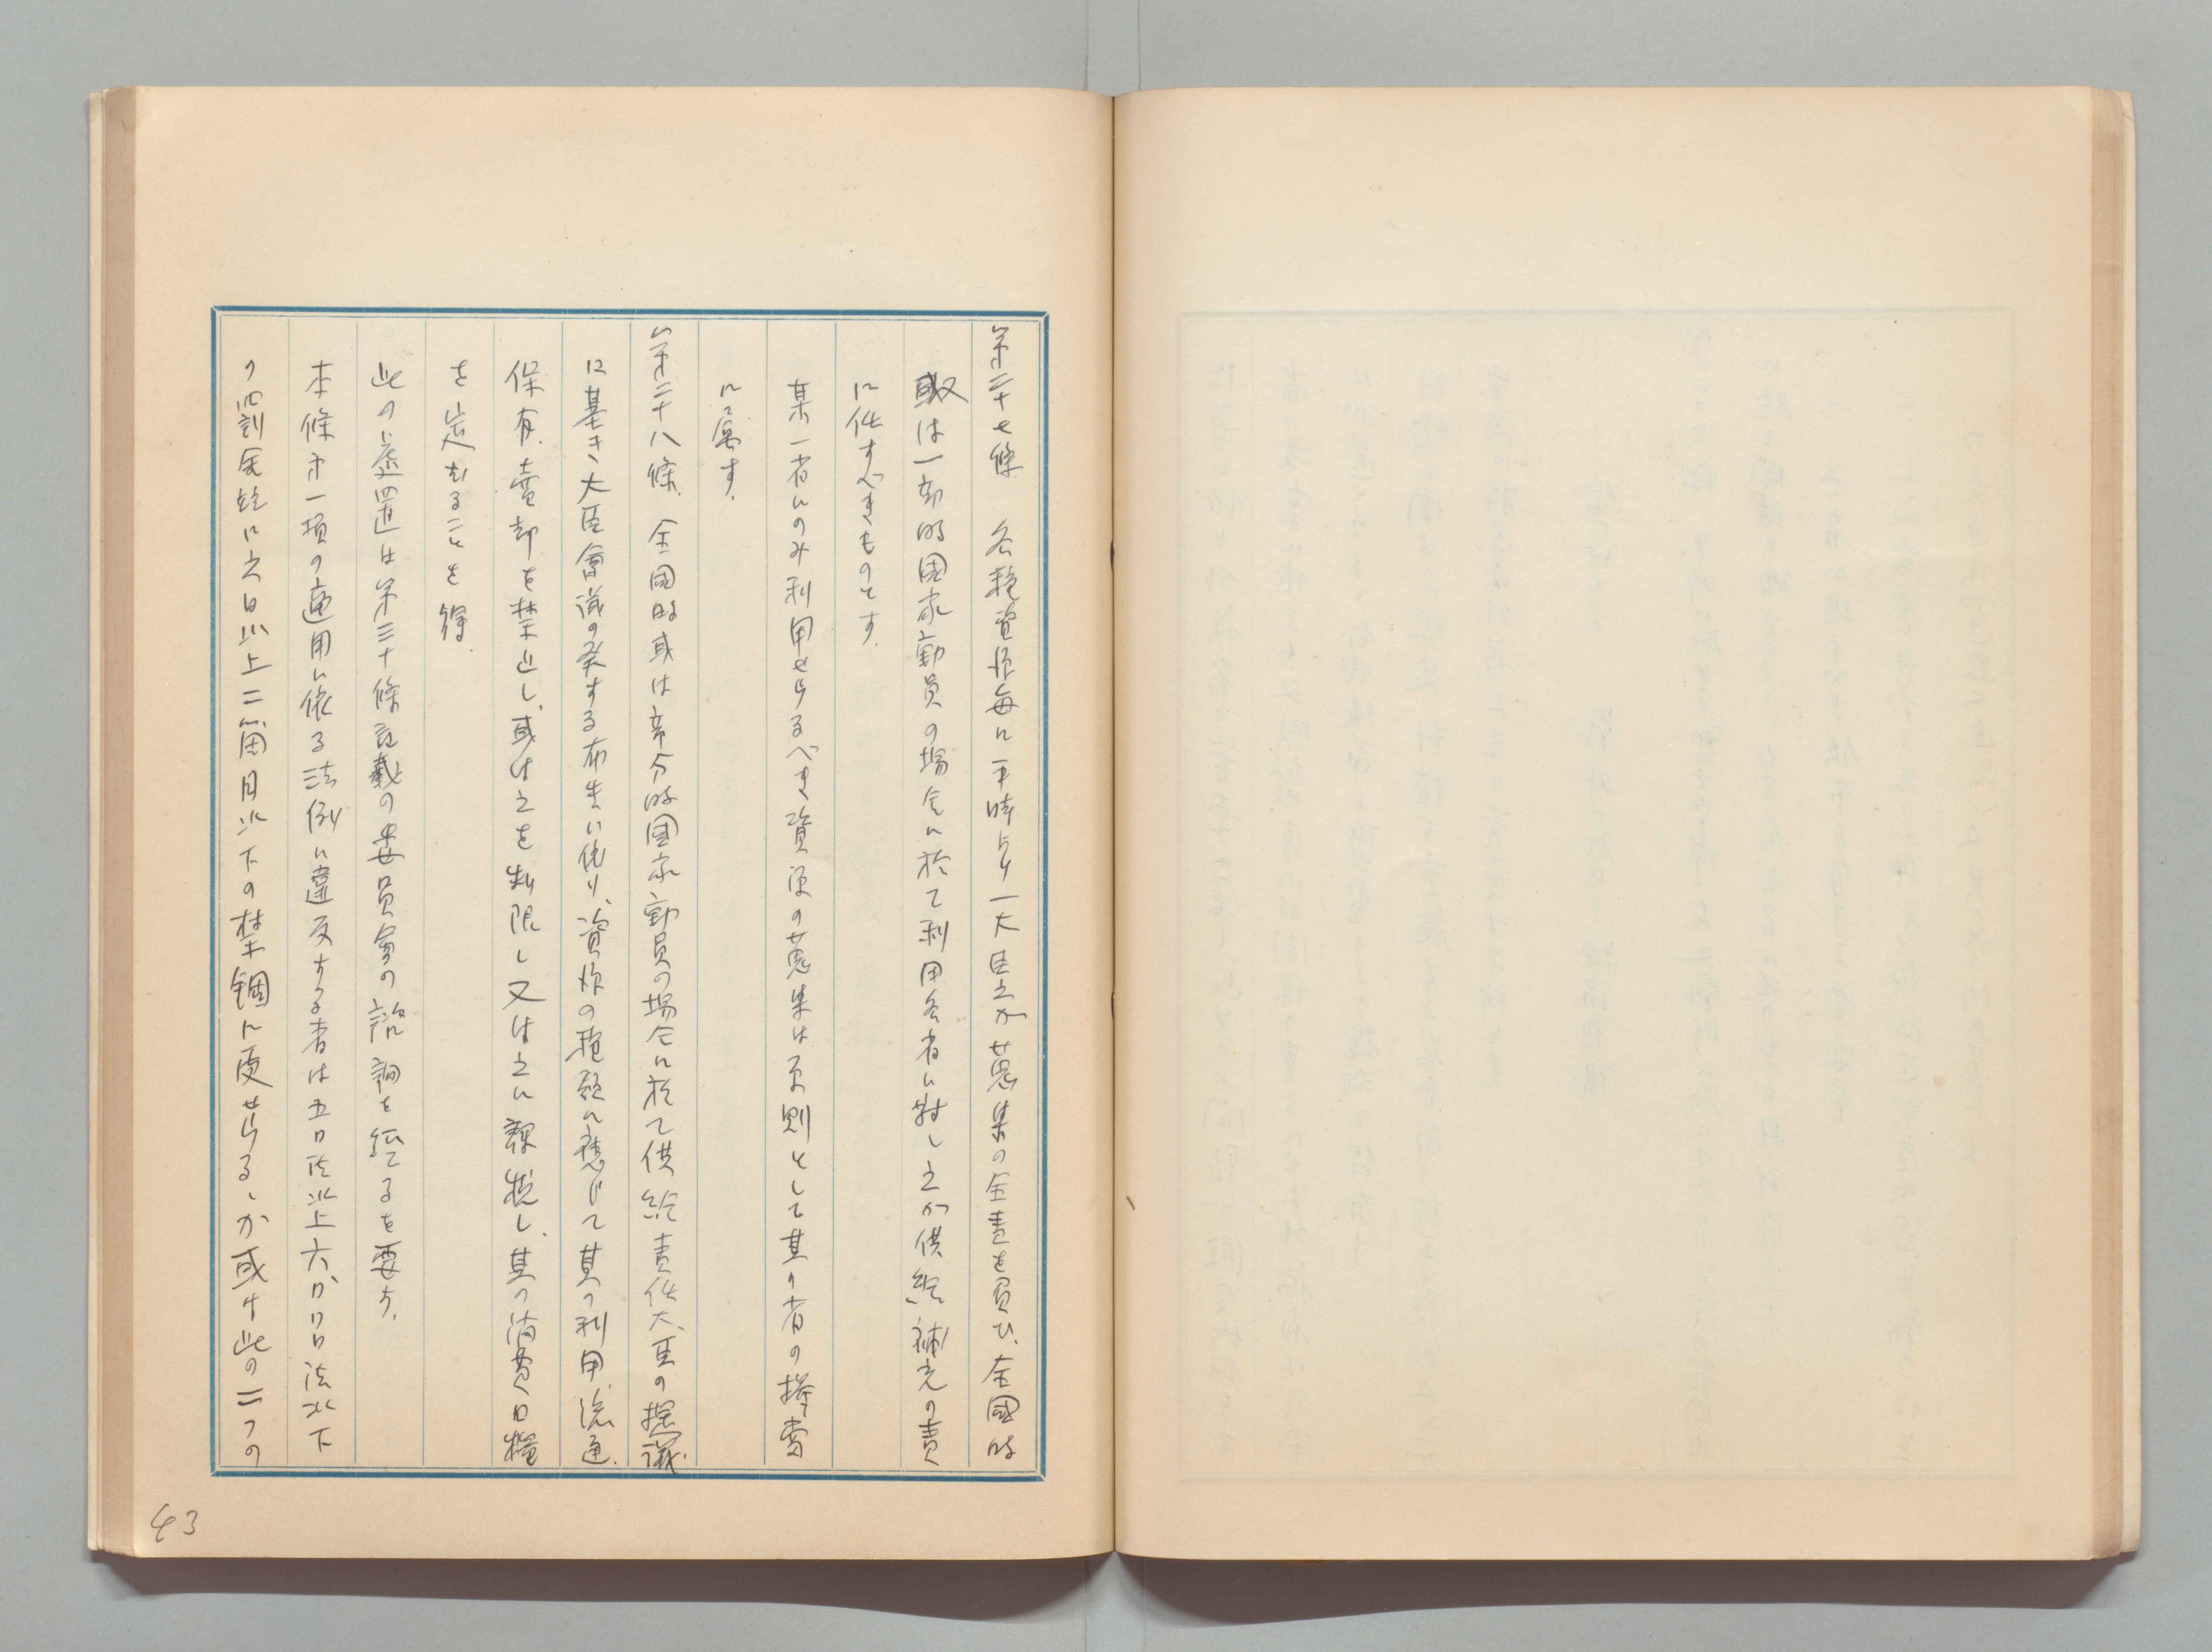 第二十七條 各種資源毎に平時より一大臣之が蒐集の全責を負ひ、全國的
或は一部的國家動員の場合に於て利用各省に對し之が供給補充の責
に任すべきものとす.
某一省にのみ利用せらるべき資源の蒐集は原則として其の省の擔當
に属す.
第二十八條. 全國的或は部分的國家動員の場合に於て供給責任大臣の提議
に基き大臣會議の発する布告に依り、資源の種類に應じて其の利用、流通.
保有. 賣却を禁止し、或は之を制限し又は之に課税し、其の消費口糧
を定むることを得.
此の處置は第三十條記載の委員會の諮詢を経るを要す.
本條第一項の適用に依る法例に違反する者は五〇法以上六万〇〇〇法以下
の罰金並に六日以上二箇月以下の禁錮に處せらるゝか或は此の二つの
43